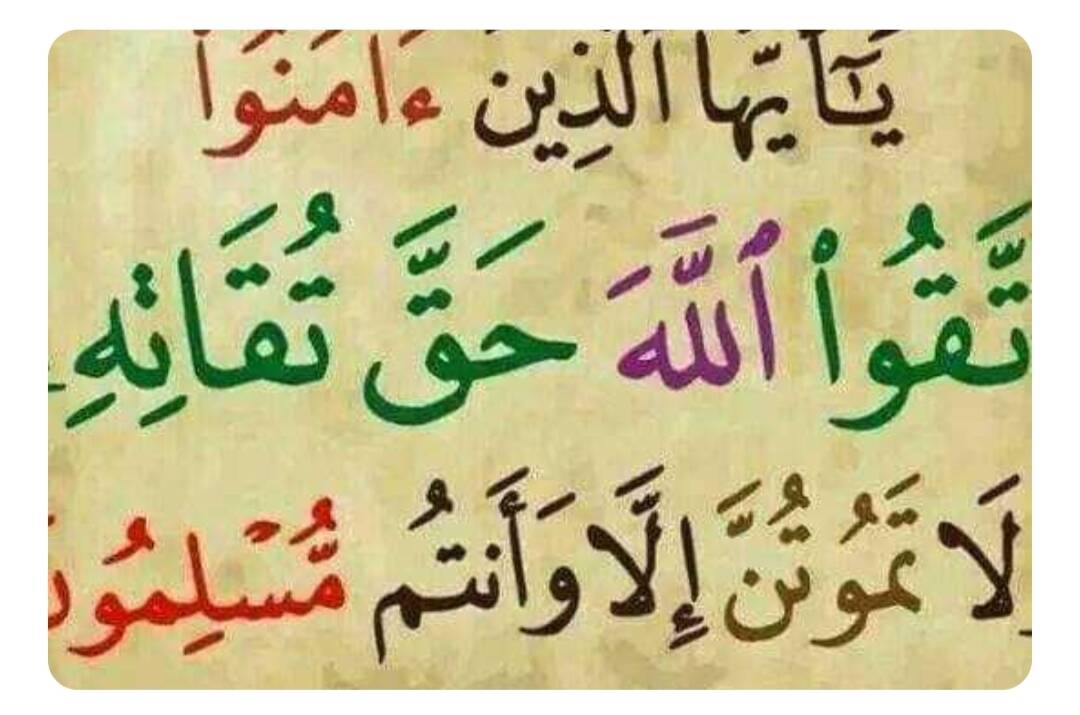 يَٰٓأَيُّهَا ٱلَّذِينَ ءَامَنُوا۟
تَّقُوا۟ ٱللَّهَ حَقَّ تُقَاتِهِۦ
لَا تَمُوتُنَّ إِلَّا وَأَنتُم مُّسْلِمُونَ